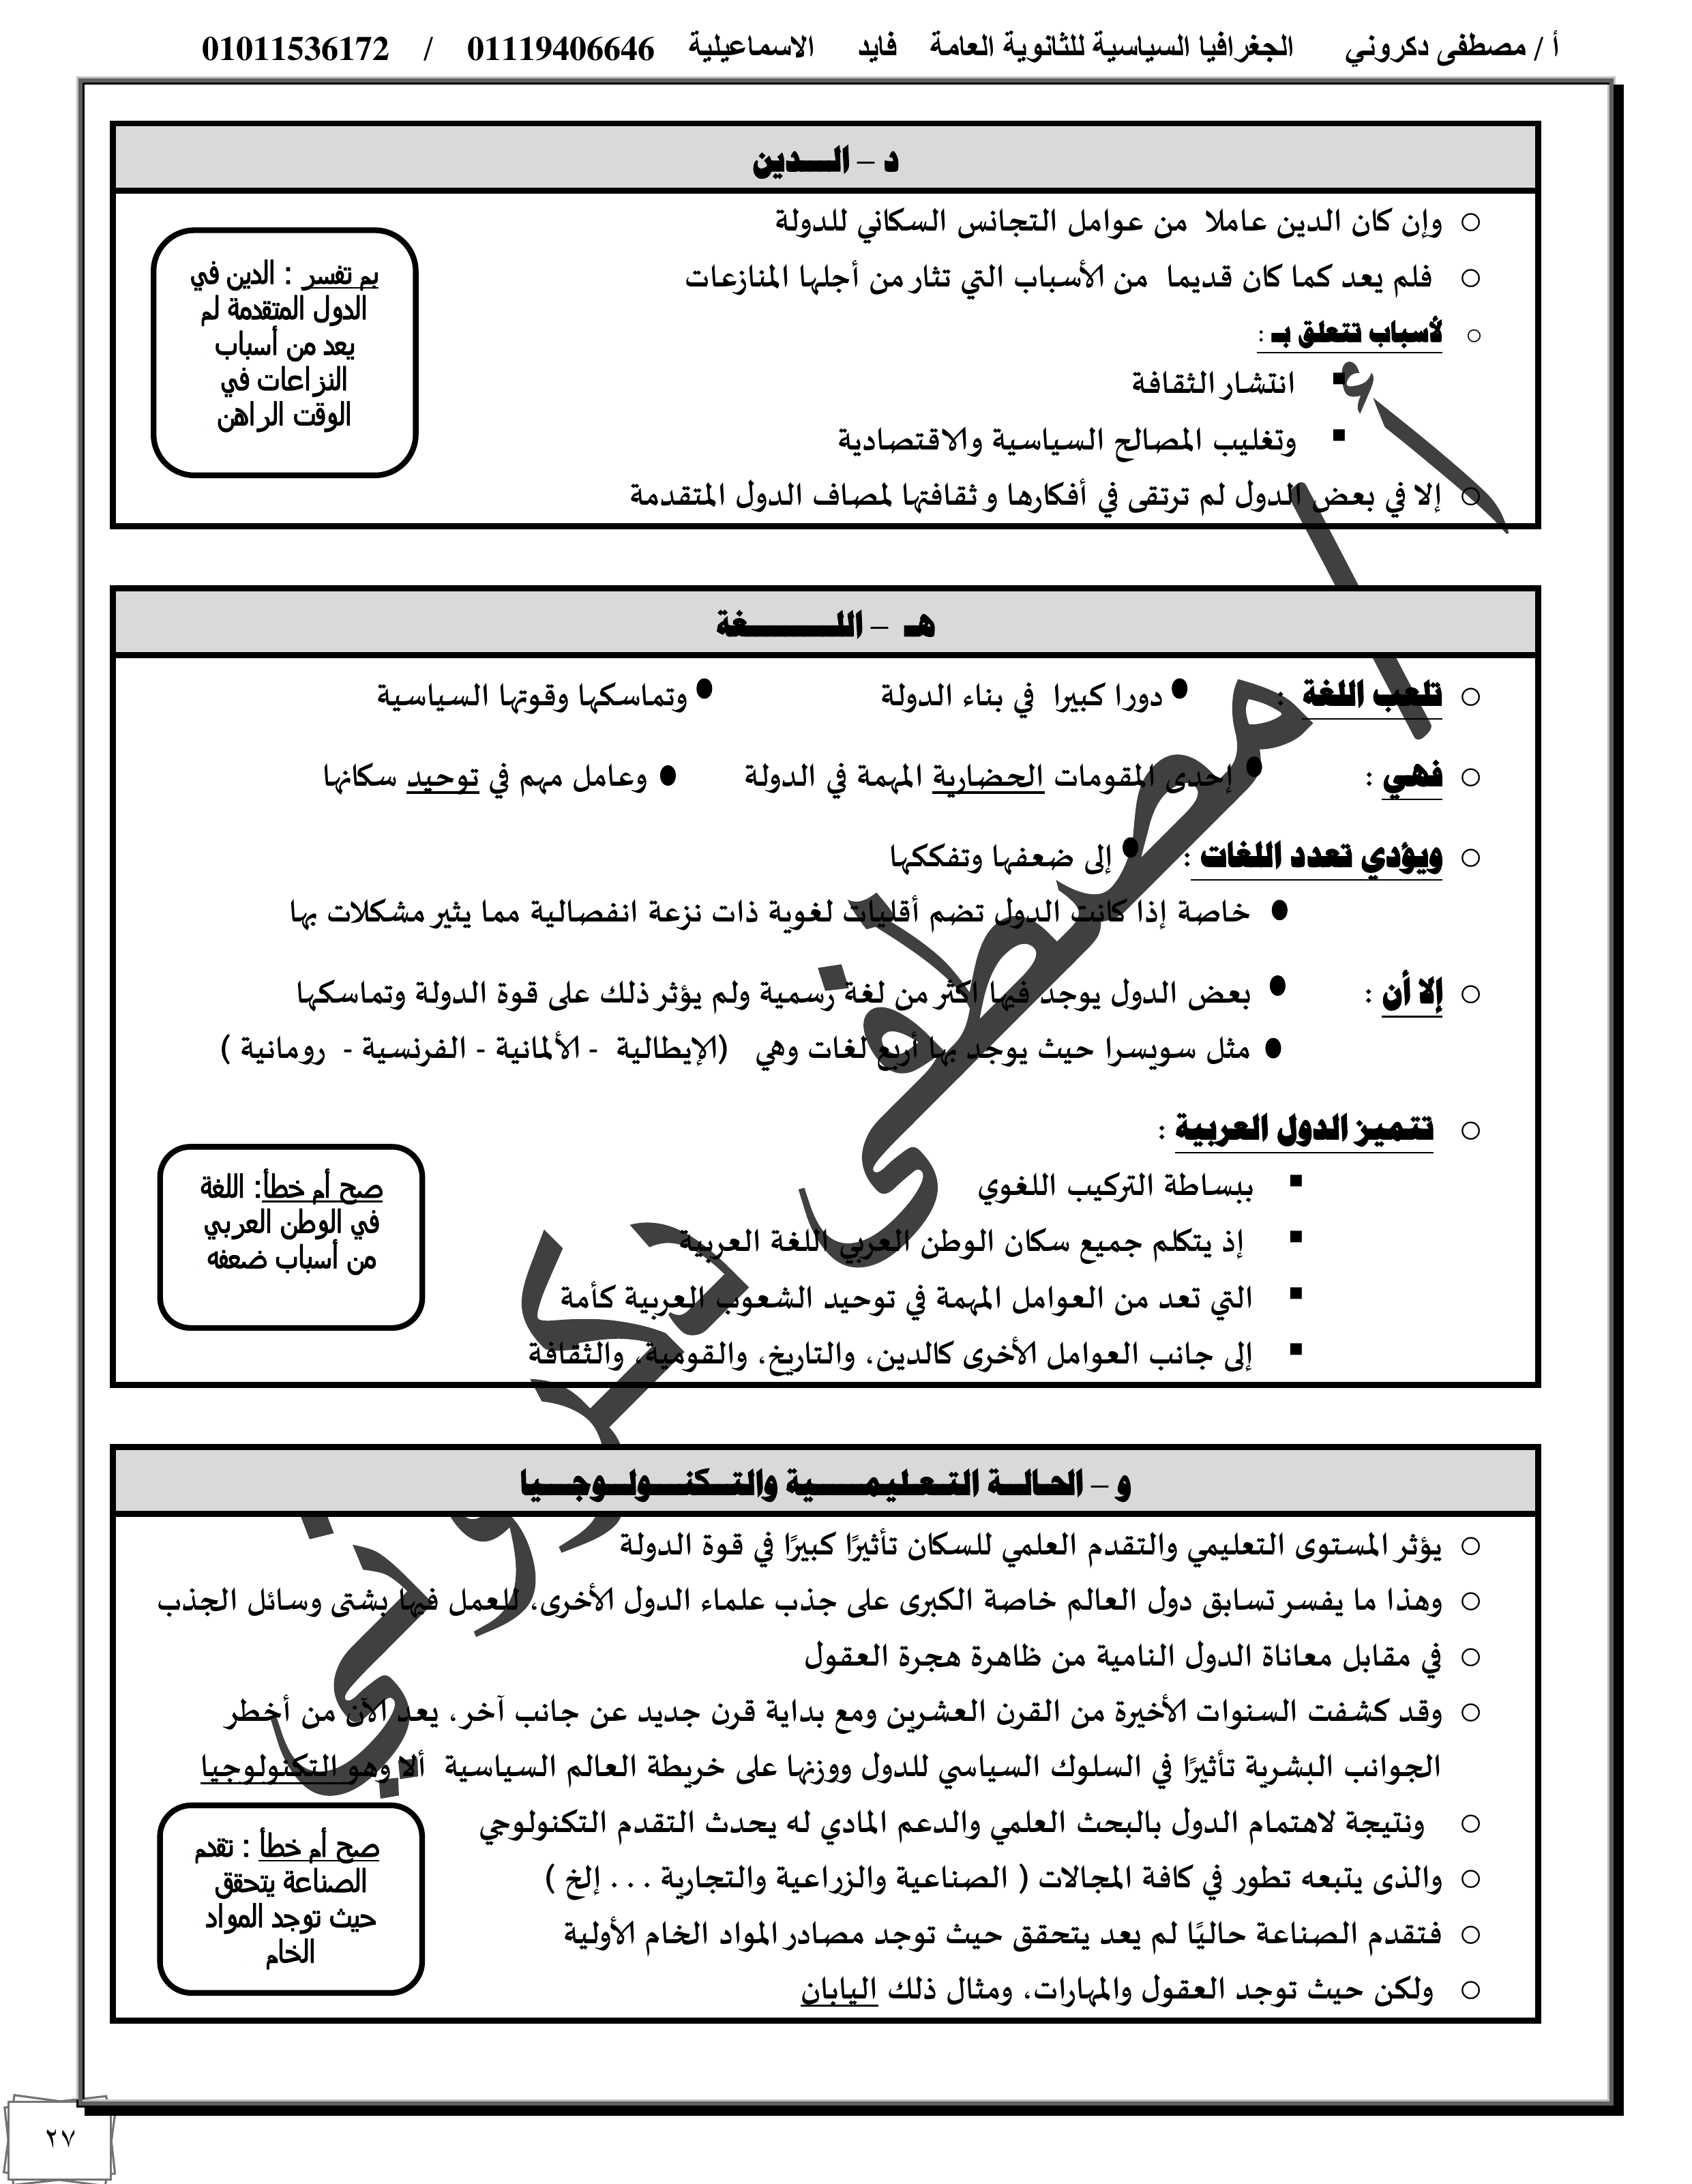 أ / مصطفى دكروني الجغرافيا السياسية للثانوية العامة فايد الاسماعيلية 01119406646 / 01011536172
د – الـــدين
وإن كان الدين عاملا من عوامل التجانس السكاني للدولة
فلم يعد كما كان قديما من الأسباب التي تثار من أجلها المنازعات
لأسباب تتعلق بـ :
انتشار الثقافة
وتغليب المصالح السياسية والاقتصادية
إلا في بعض الدول لم ترتقى في أفكارها و ثقافتها لمصاف الدول المتقدمة
بم تفسر : الدين في
الدول المتقدمة لم
يعد من أسباب
النزاعات في
الوقت الراهن
هـ – اللــــــــغة
تلعب اللغة : • دورا كبيرا في بناء الدولة • وتماسكها وقوتها السياسية
فهي : • إحدى المقومات الحضارية المهمة في الدولة • وعامل مهم في توحيد سكانها
ويؤدي تعدد اللغات : • إلى ضعفها وتفككها
• خاصة إذا كانت الدول تضم أقليات لغوية ذات نزعة انفصالية مما يثير مشكلات بها
إلا أن : • بعض الدول يوجد فيها اكثر من لغة رسمية ولم يؤثر ذلك على قوة الدولة وتماسكها
• مثل سويسرا حيث يوجد بها أربع لغات وهي (الإيطالية - الألمانية - الفرنسية - رومانية )
تتميز الدول العربية :
ببساطة التركيب اللغوي
إذ يتكلم جميع سكان الوطن العربي اللغة العربية
التي تعد من العوامل المهمة في توحيد الشعوب العربية كأمة
إلى جانب العوامل الأخرى كالدين، والتاريخ، والقومية، والثقافة
صح أم خطأ: اللغة
في الوطن العربي
من أسباب ضعفه
و – الحـالـــة التـعـليـمــــــية والتــكنــــولــوجــــيا
يؤثر المستوى التعليمي والتقدم العلمي للسكان تأثيرًا كبيرًا في قوة الدولة
وهذا ما يفسر تسابق دول العالم خاصة الكبرى على جذب علماء الدول الأخرى، للعمل فيها بشتى وسائل الجذب
في مقابل معاناة الدول النامية من ظاهرة هجرة العقول
وقد كشفت السنوات الأخيرة من القرن العشرين ومع بداية قرن جديد عن جانب آخر، يعد الآن من أخطر
الجوانب البشرية تأثيرًا في السلوك السياسي للدول ووزنها على خريطة العالم السياسية ألا وهو التكنولوجيا
ونتيجة لاهتمام الدول بالبحث العلمي والدعم المادي له يحدث التقدم التكنولوجي
والذى يتبعه تطور في كافة المجالات ( الصناعية والزراعية والتجارية . . . إلخ )
فتقدم الصناعة حاليًا لم يعد يتحقق حيث توجد مصادر المواد الخام الأولية
ولكن حيث توجد العقول والمهارات، ومثال ذلك اليابان
صح أم خطأ : تقدم
الصناعة يتحقق
حيث توجد المواد
الخام
أ / مصطفى دكروني
٢٧